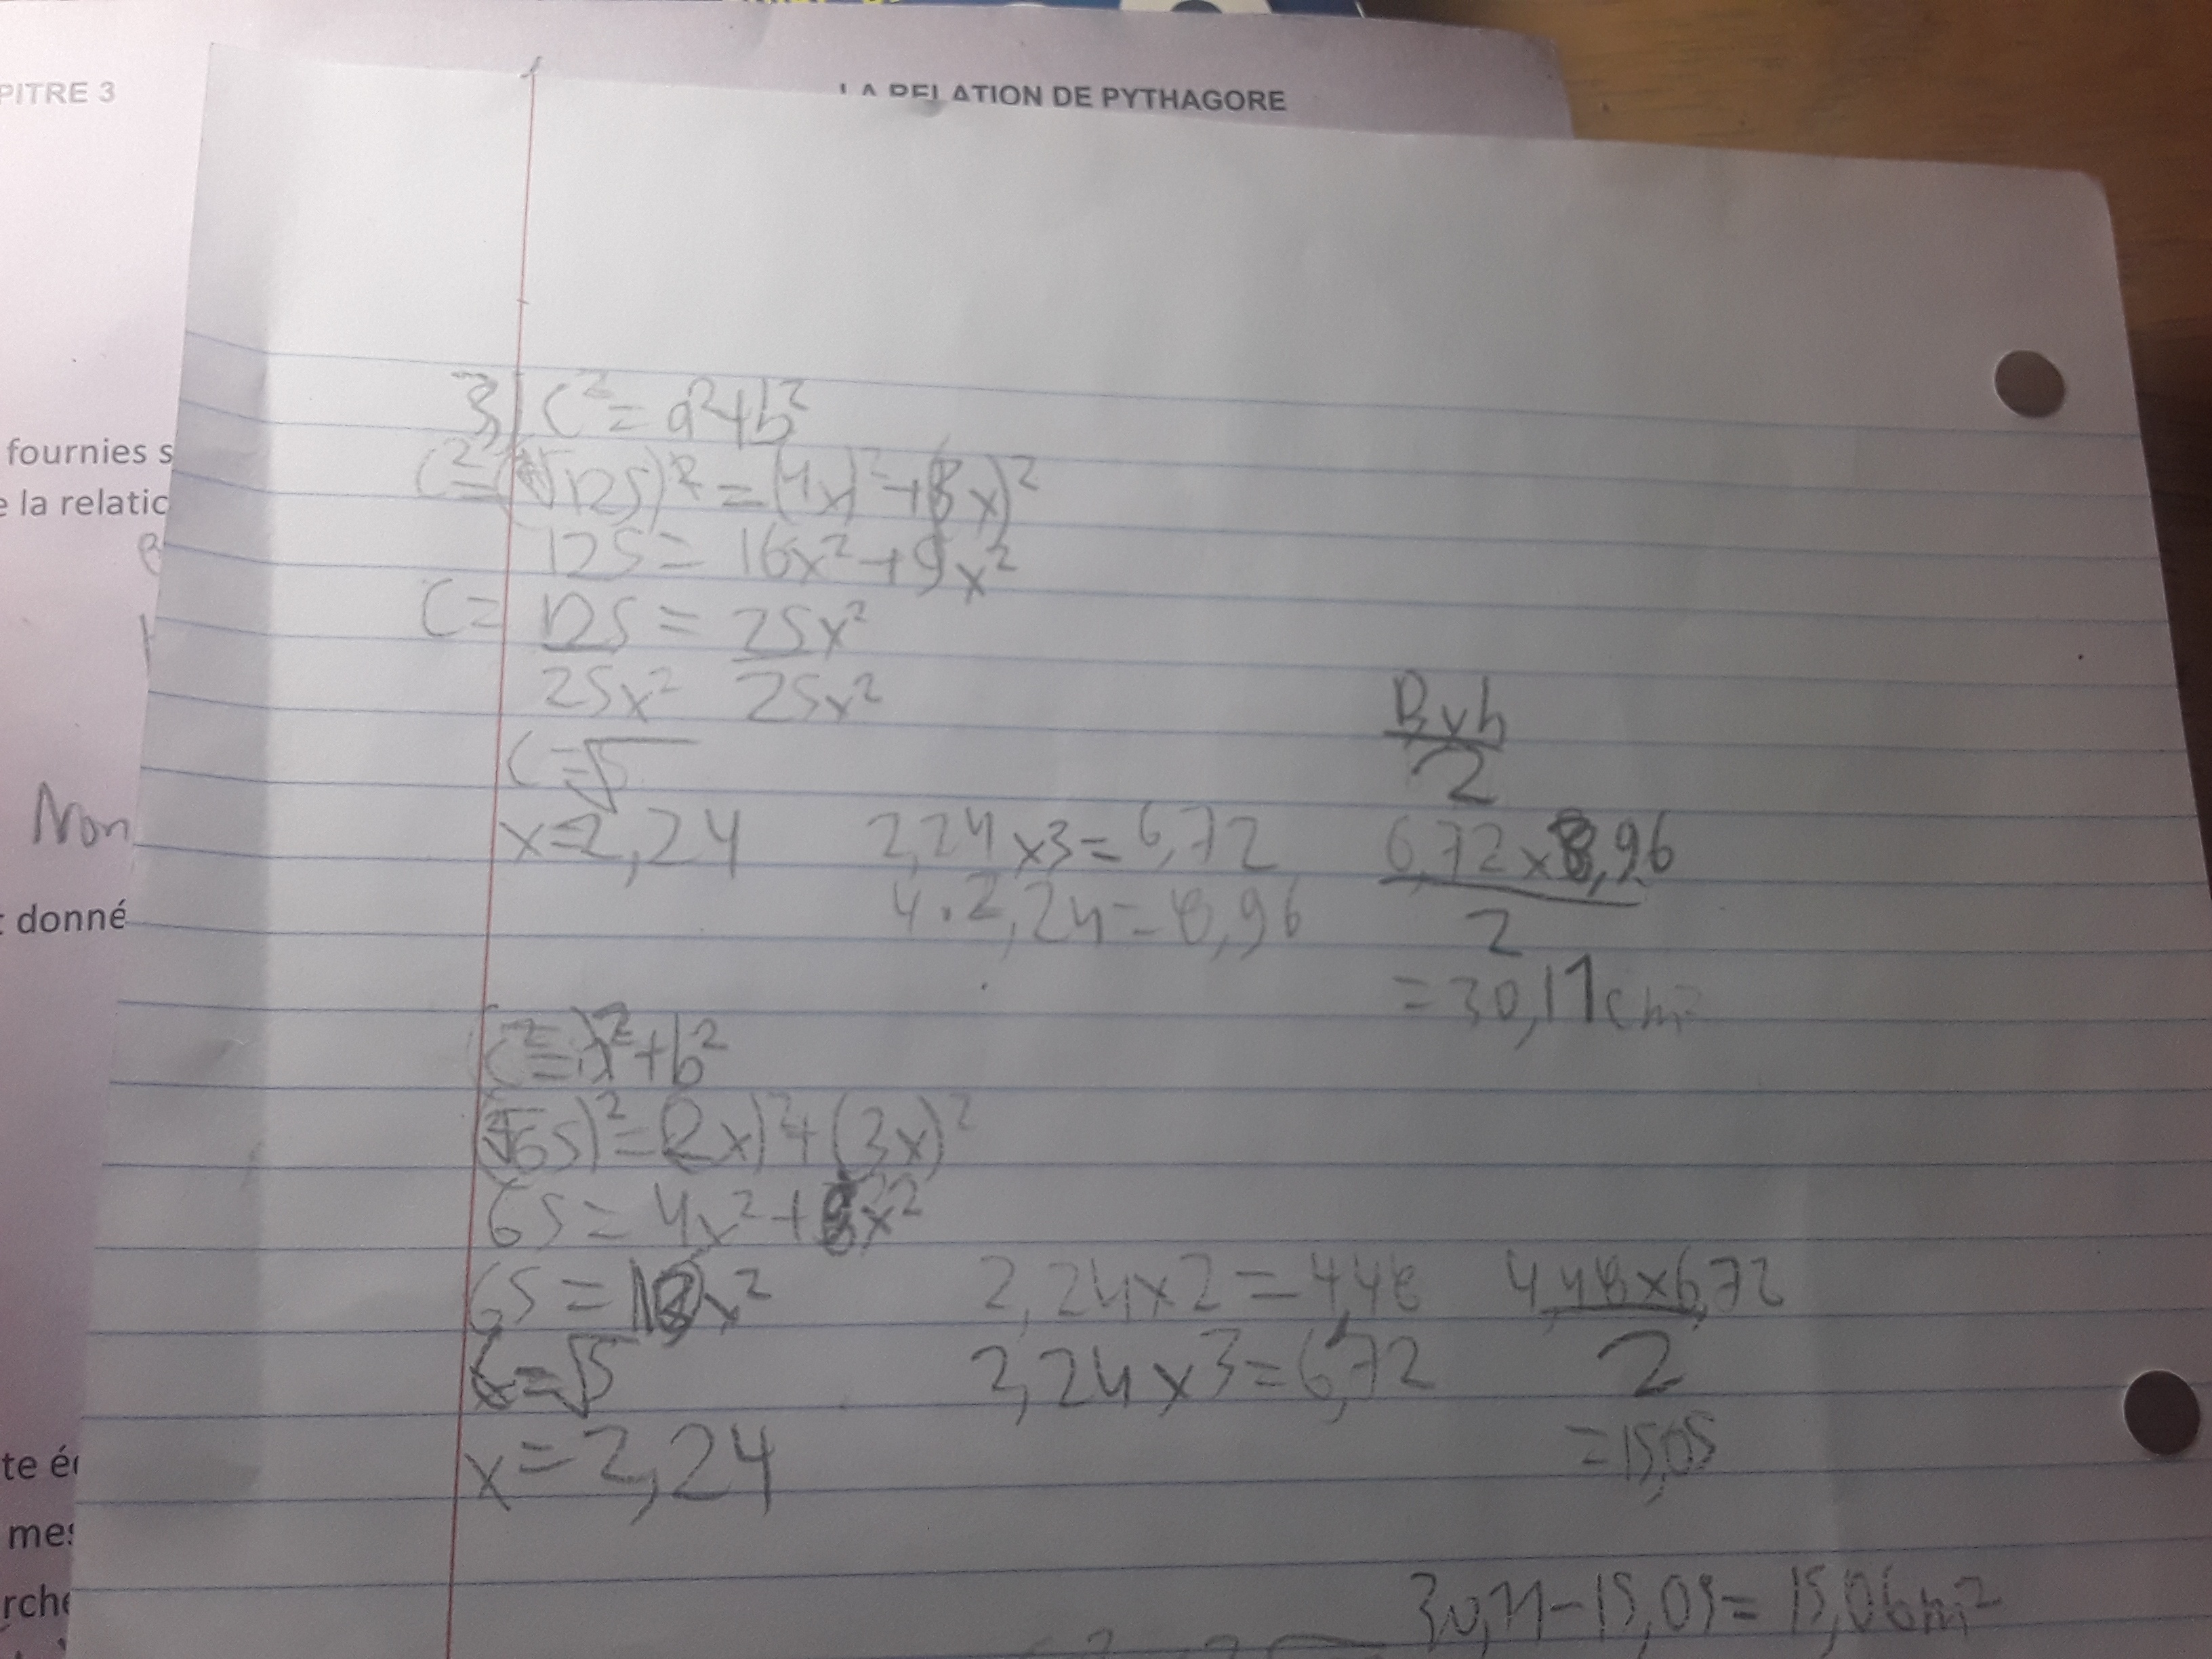 PITRE 3
LA RELATION DE PYTHAGORE
fournies s
e la relatic
Non
: donné
te é
mes
rche
3, c² = a²+b²
c²=(√125)² = (4x)²+(3x)²
125 = 16x²+9x²
C= 125 = 25x²
25x² 25x²
C=√5
x=2,24
2,24 x3=6,72
4·2,24=8,96
B x h
2
6,72 x 8,96
2
=30,11cm²
c²=a²+b²
(√65)²=(2x)²+(3x)²
65= 4x²+9x²
65=13x²
x=√5
x=2,24
2,24x2=4,48
2,24x3=6,72
4,48x6,72
2
=15,05
30,11-15,05=15,06m²